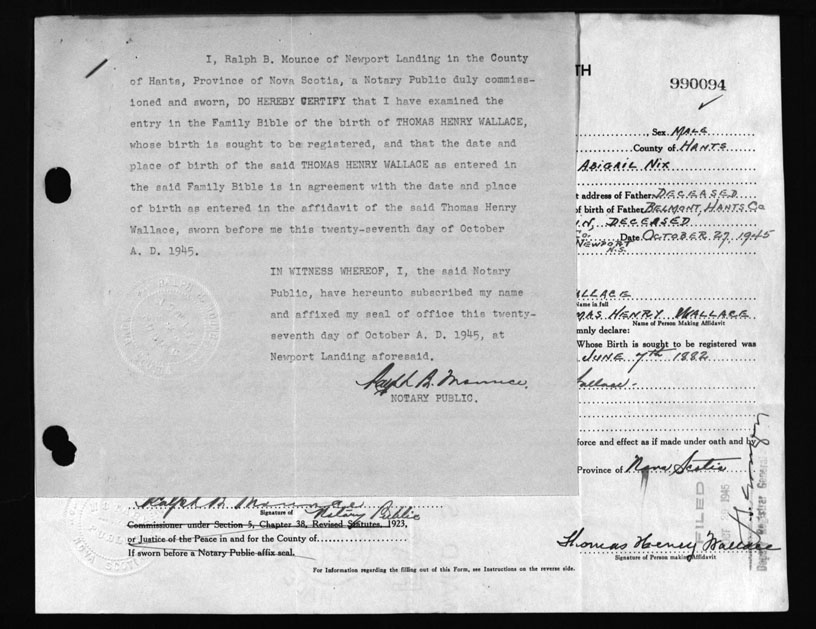 I, Ralph B. Mounce of Newport Landing in the County
of Hants, Province of Nova Scotia, a Notary Public duly commis-
sioned and sworn, DO HEREBY CERTIFY that I have examined the
entry in the Family Bible of the birth of THOMAS HENRY WALLACE,
whose birth is sought to be registered, and that the date and
place of birth of the said THOMAS HENRY WALLACE as entered in
the said Family Bible is in agreement with the date and place
of birth as entered in the affidavit of the said Thomas Henry
Wallace, sworn before me this twenty-seventh day of October
A. D. 1945.
IN WITNESS WHEREOF, I, the said Notary
Public, have hereunto subscribed my name
and affixed my seal of office this twenty-
seventh day of October A. D. 1945, at
Newport Landing aforesaid.
Ralph B. Mounce.
NOTARY PUBLIC.
TH
990094
Sex MALE
County of HANTS
ABIGAIL NIX
t address of Father DECEASED
of birth of Father BELMONT, HANTS CO
N, DECEASED
Co. Date OCTOBER 27 1945
NEWPORT
N.S.
ALLACE
Name in full
MAS HENRY WALLACE
Name of Person Making Affidavit
mnly declare:
Whose Birth is sought to be registered was
JUNE 7th 1882
Wallace
force and effect as if made under oath and by
Province of Nova Scotia
FILED
1945
Thomas Henry Wallace
Signature of Person making Affidavit
Ralph B. Mounce
Signature of Notary Public
Commissioner under Section 5, Chapter 38, Revised Statutes, 1923,
or Justice of the Peace in and for the County of
If sworn before a Notary Public affix seal.
For Information regarding the filling out of this Form, see Instructions on the reverse side.